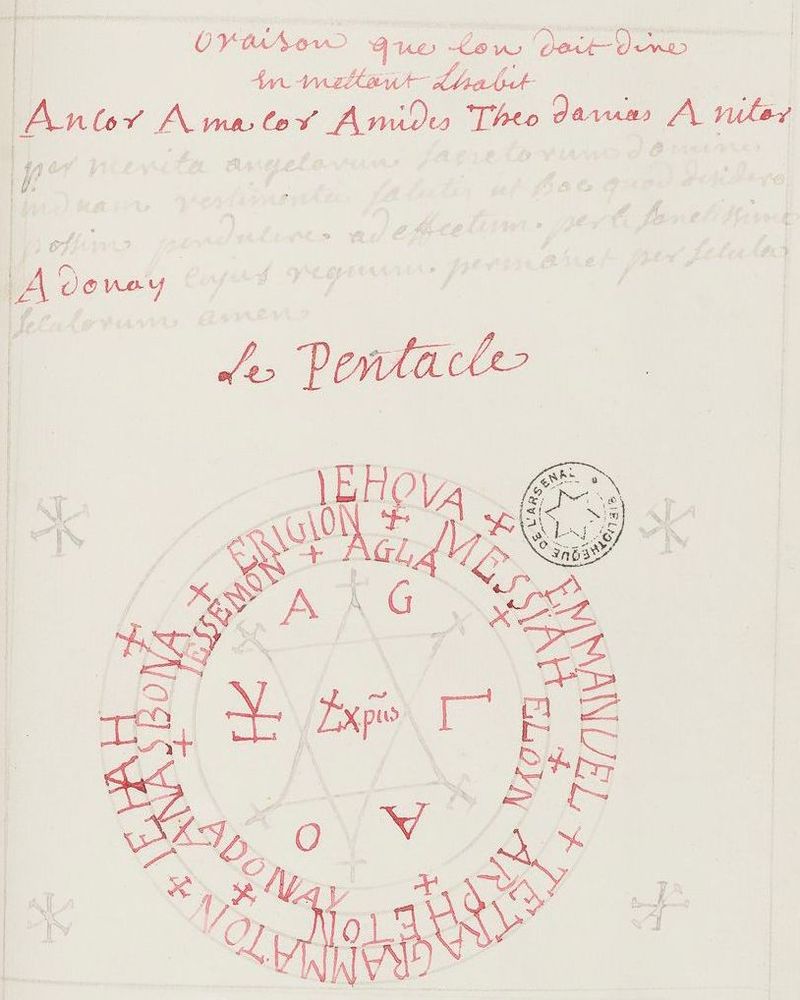 oraison que lon doit dire
En mettant Lhabit
Ancor Amacor Amides Theodanias Anitor
per merita angelorum sacretorum domine
induam vestimenta salutis ut hoc quod desidero
possim perducere ad effectum. per te sanctissime
Adonay cujus regnum. permanet per secula
seculorum amen
Le Pentacle
IEHOVA + EMMANUEL + TETRAGRAMMATON + IEHAH +
ERIGION + MESSIAH + ARPHETON + ANASBONA +
AGLA + ELOYN + ADONAY + IESSEMON +
A G
L
A
O
xpūs
BIBLIOTHEQUE DE L'ARSENAL